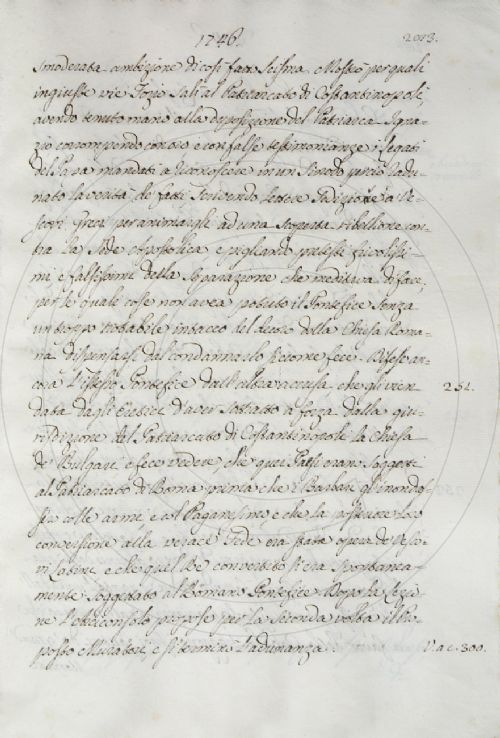 1746.
2073.
smoderata ambizione di così fatto Scisma. Mostrò per quali
ingiuste vie Fozio salì al Patriarcato di Costantinopoli,
avendo tenuto mano alla deposizione del Patriarca Igna-
zio corrompendo con oro e con false testimonianze i Legati
del Papa mandati a riconoscere in un Sinodo perciò radu-
nato la verità de' fatti scrivendo lettere sediziose a' Ve-
scovi Greci per animargli ad una scoperta ribellione con-
tra la Sede Apostolica e pigliando pretesti frivolissi-
mi e falsissimi della separazione che meditava di fare,
per le quale cose non avea potuto il Pontefice senza
un troppo notabile intacco del decoro della Chiesa Roma-
na dispensarsi dal condannarlo siccome fece. Difese an-
cora l'istesso Pontefice dall'altra accusa che gli vien
data dagli Eretici d'aver sottratto a forza dalla giu-
risdizione del Patriarcato di Costantinopoli la Chiesa
de' Bulgari e fece vedere, che quei Paesi eran soggetti
al Patriarcato di Roma prima che i Barbari gl'inondas-
sero colle armi e col Paganesimo e che la posteriore loro
conversione alla verace Fede era stata opera de' Vesco-
vi Latini e che quel Re convertito si era spontanea-
mente soggettato al Roman Pontefice. Dopo la Lezio-
ne l'Arciconsolo propose per la seconda volta il Pro-
posto Muratori, e si terminò l'adunanza.
251.
V. a c. 300.